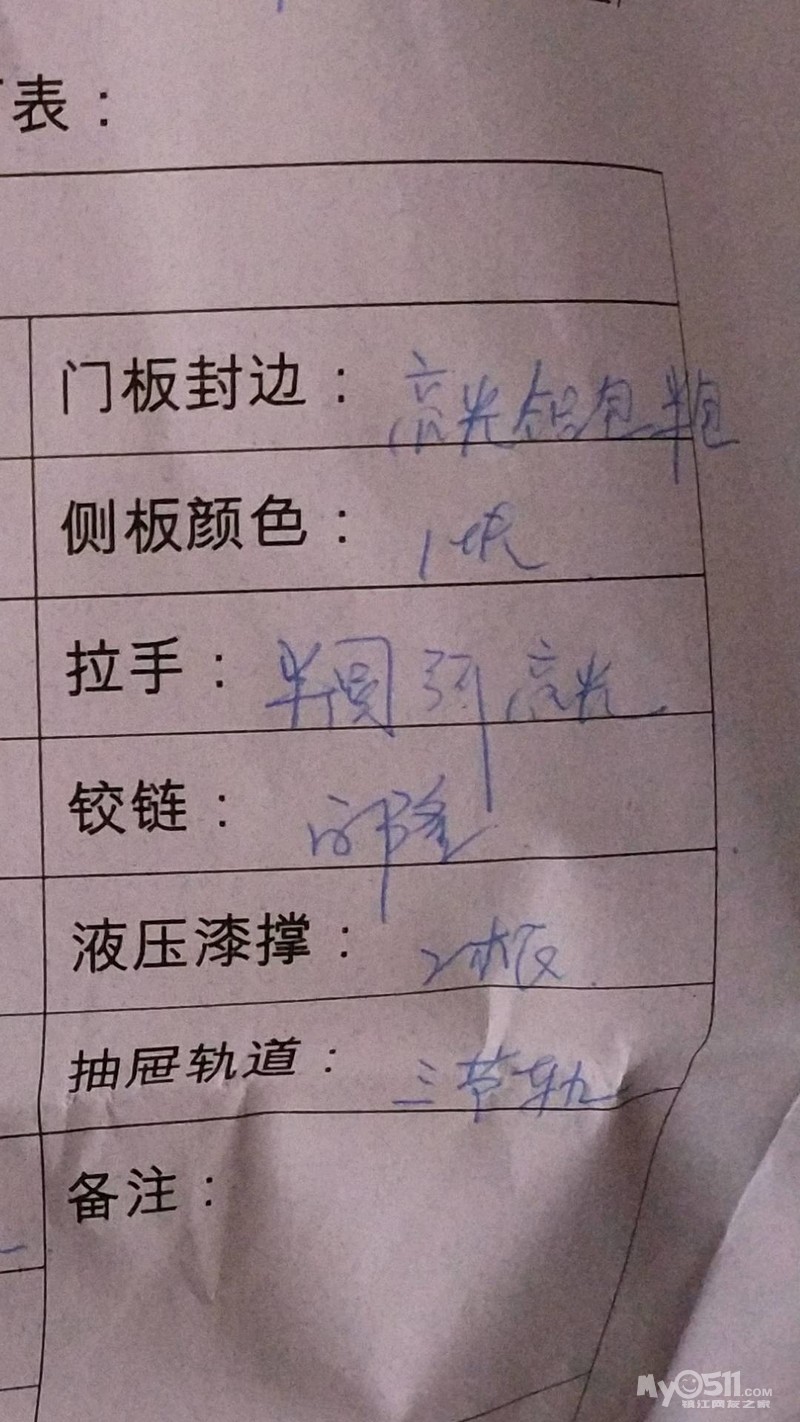 表：
门板封边：高光铝包半包
侧板颜色：1块
拉手：半圆弧高光
铰链：
液压漆撑：2根
抽屉轨道：三节轨
备注：
My0511.COM
镇江网友之家